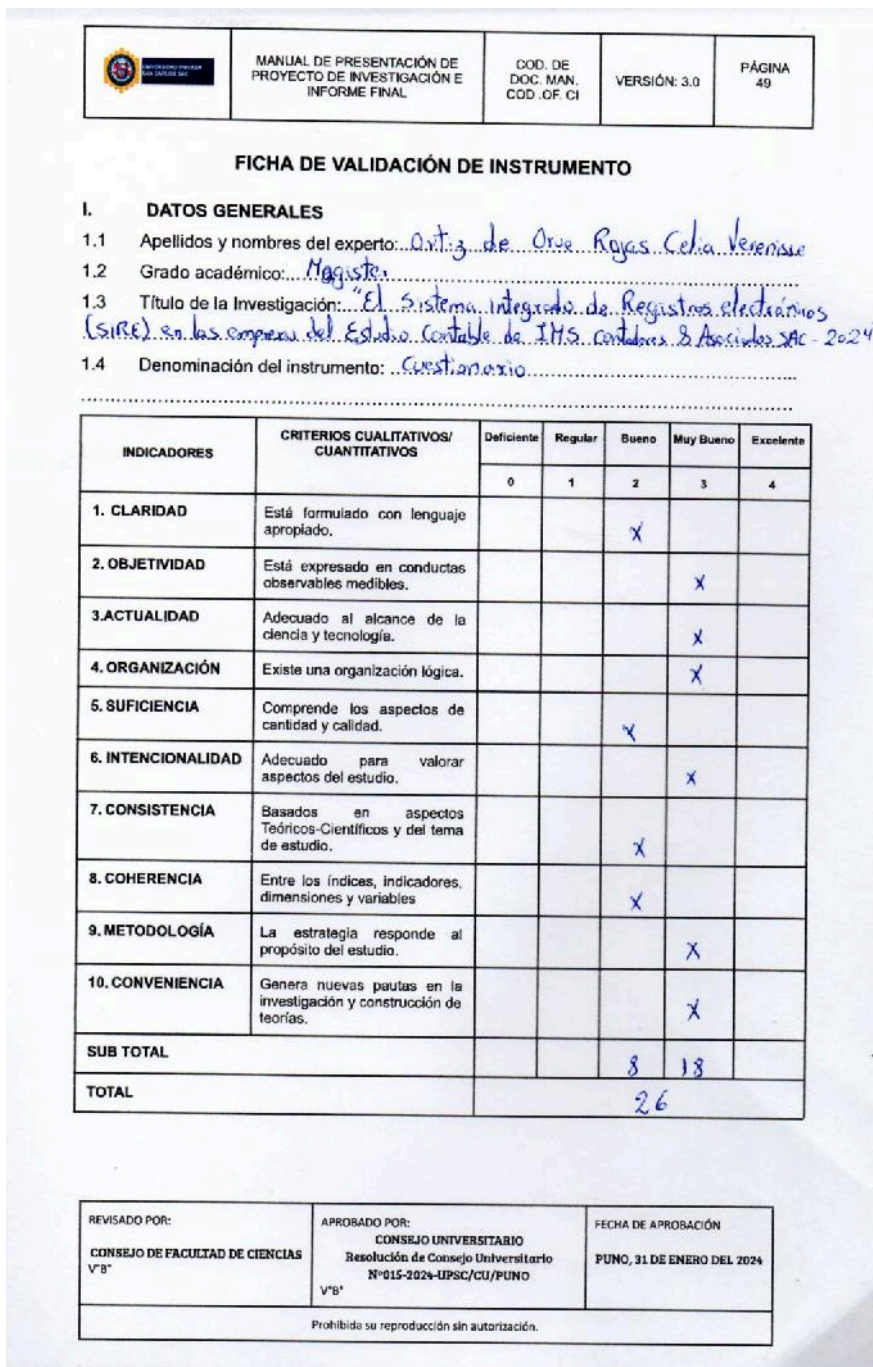 UNIVERSIDAD PRIVADA
SAN CARLOS SAC
MANUAL DE PRESENTACIÓN DE
PROYECTO DE INVESTIGACIÓN E
INFORME FINAL
COD. DE
DOC. MAN.
COD .OF. CI
VERSIÓN: 3.0
PÁGINA
49
FICHA DE VALIDACIÓN DE INSTRUMENTO
I. DATOS GENERALES
1.1 Apellidos y nombres del experto: Ortiz de Orue Rojas Celia Verenisse
1.2 Grado académico: Magister
1.3 Título de la Investigación: "El Sistema integrado de Registros electrónicos
(SIRE) en las empresas del Estudio Contable de IMS contadores & Asociados SAC - 2024
1.4 Denominación del instrumento: Cuestionario
INDICADORES
CRITERIOS CUALITATIVOS/
CUANTITATIVOS
Deficiente Regular Bueno Muy Bueno Excelente
0 1 2 3 4
1. CLARIDAD
Está formulado con lenguaje
apropiado.
X
2. OBJETIVIDAD
Está expresado en conductas
observables medibles.
X
3.ACTUALIDAD
Adecuado al alcance de la
ciencia y tecnología.
X
4. ORGANIZACIÓN
Existe una organización lógica.
X
5. SUFICIENCIA
Comprende los aspectos de
cantidad y calidad.
X
6. INTENCIONALIDAD
Adecuado para valorar
aspectos del estudio.
X
7. CONSISTENCIA
Basados en aspectos
Teóricos-Científicos y del tema
de estudio.
X
8. COHERENCIA
Entre los índices, indicadores,
dimensiones y variables
X
9. METODOLOGÍA
La estrategia responde al
propósito del estudio.
X
10. CONVENIENCIA
Genera nuevas pautas en la
investigación y construcción de
teorías.
X
SUB TOTAL 8 18
TOTAL 26
REVISADO POR:
CONSEJO DE FACULTAD DE CIENCIAS
V°B°
APROBADO POR:
CONSEJO UNIVERSITARIO
Resolución de Consejo Universitario
N°015-2024-UPSC/CU/PUNO
V°B°
FECHA DE APROBACIÓN
PUNO, 31 DE ENERO DEL 2024
Prohibida su reproducción sin autorización.